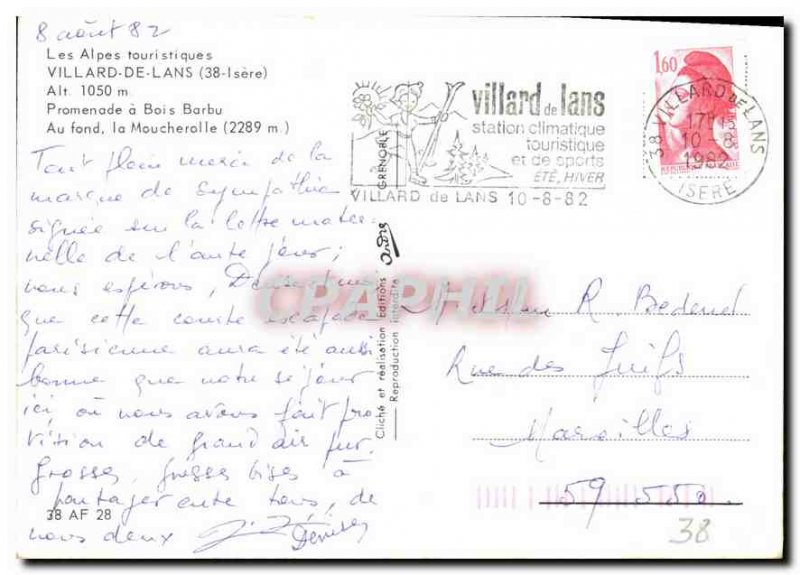 8 août 82
Les Alpes touristiques
VILLARD-DE-LANS (38-Isère)
Alt. 1050 m
Promenade à Bois Barbu
Au fond, la Moucherolle (2289 m.)
Tout plein merci de la
marque de sympathie
signée sur la lettre mater-
nelle de l'autre jour;
nous espérons, Denise et moi,
que cette courte escapade
parisienne aura été aussi
bonne que notre séjour
ici où nous avons fait pro
vision de grand air pur.
Grosses, grosses bises à
partager entre tous, de
nous deux
Denise
38 AF 28
GRENOBLE
Cliché et réalisation Editions André
Reproduction interdite
villard de lans
station climatique
touristique
et de sports
ÉTÉ, HIVER
VILLARD de LANS 10-8-82
1,60
38 VILLARD DE LANS
17H15
10-8
1982
ISERE
CPAPHIL
R. Bedenet
Rue des Juifs
Maroilles
59 550
38